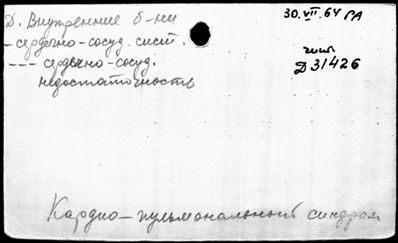 Д. Внутренние б-ни
30.VII.64 РА
- сердечно-сосуд. сист.
--- сердечно-сосуд.
недостаточность
Д31426
Кардио-пульмональный синдром